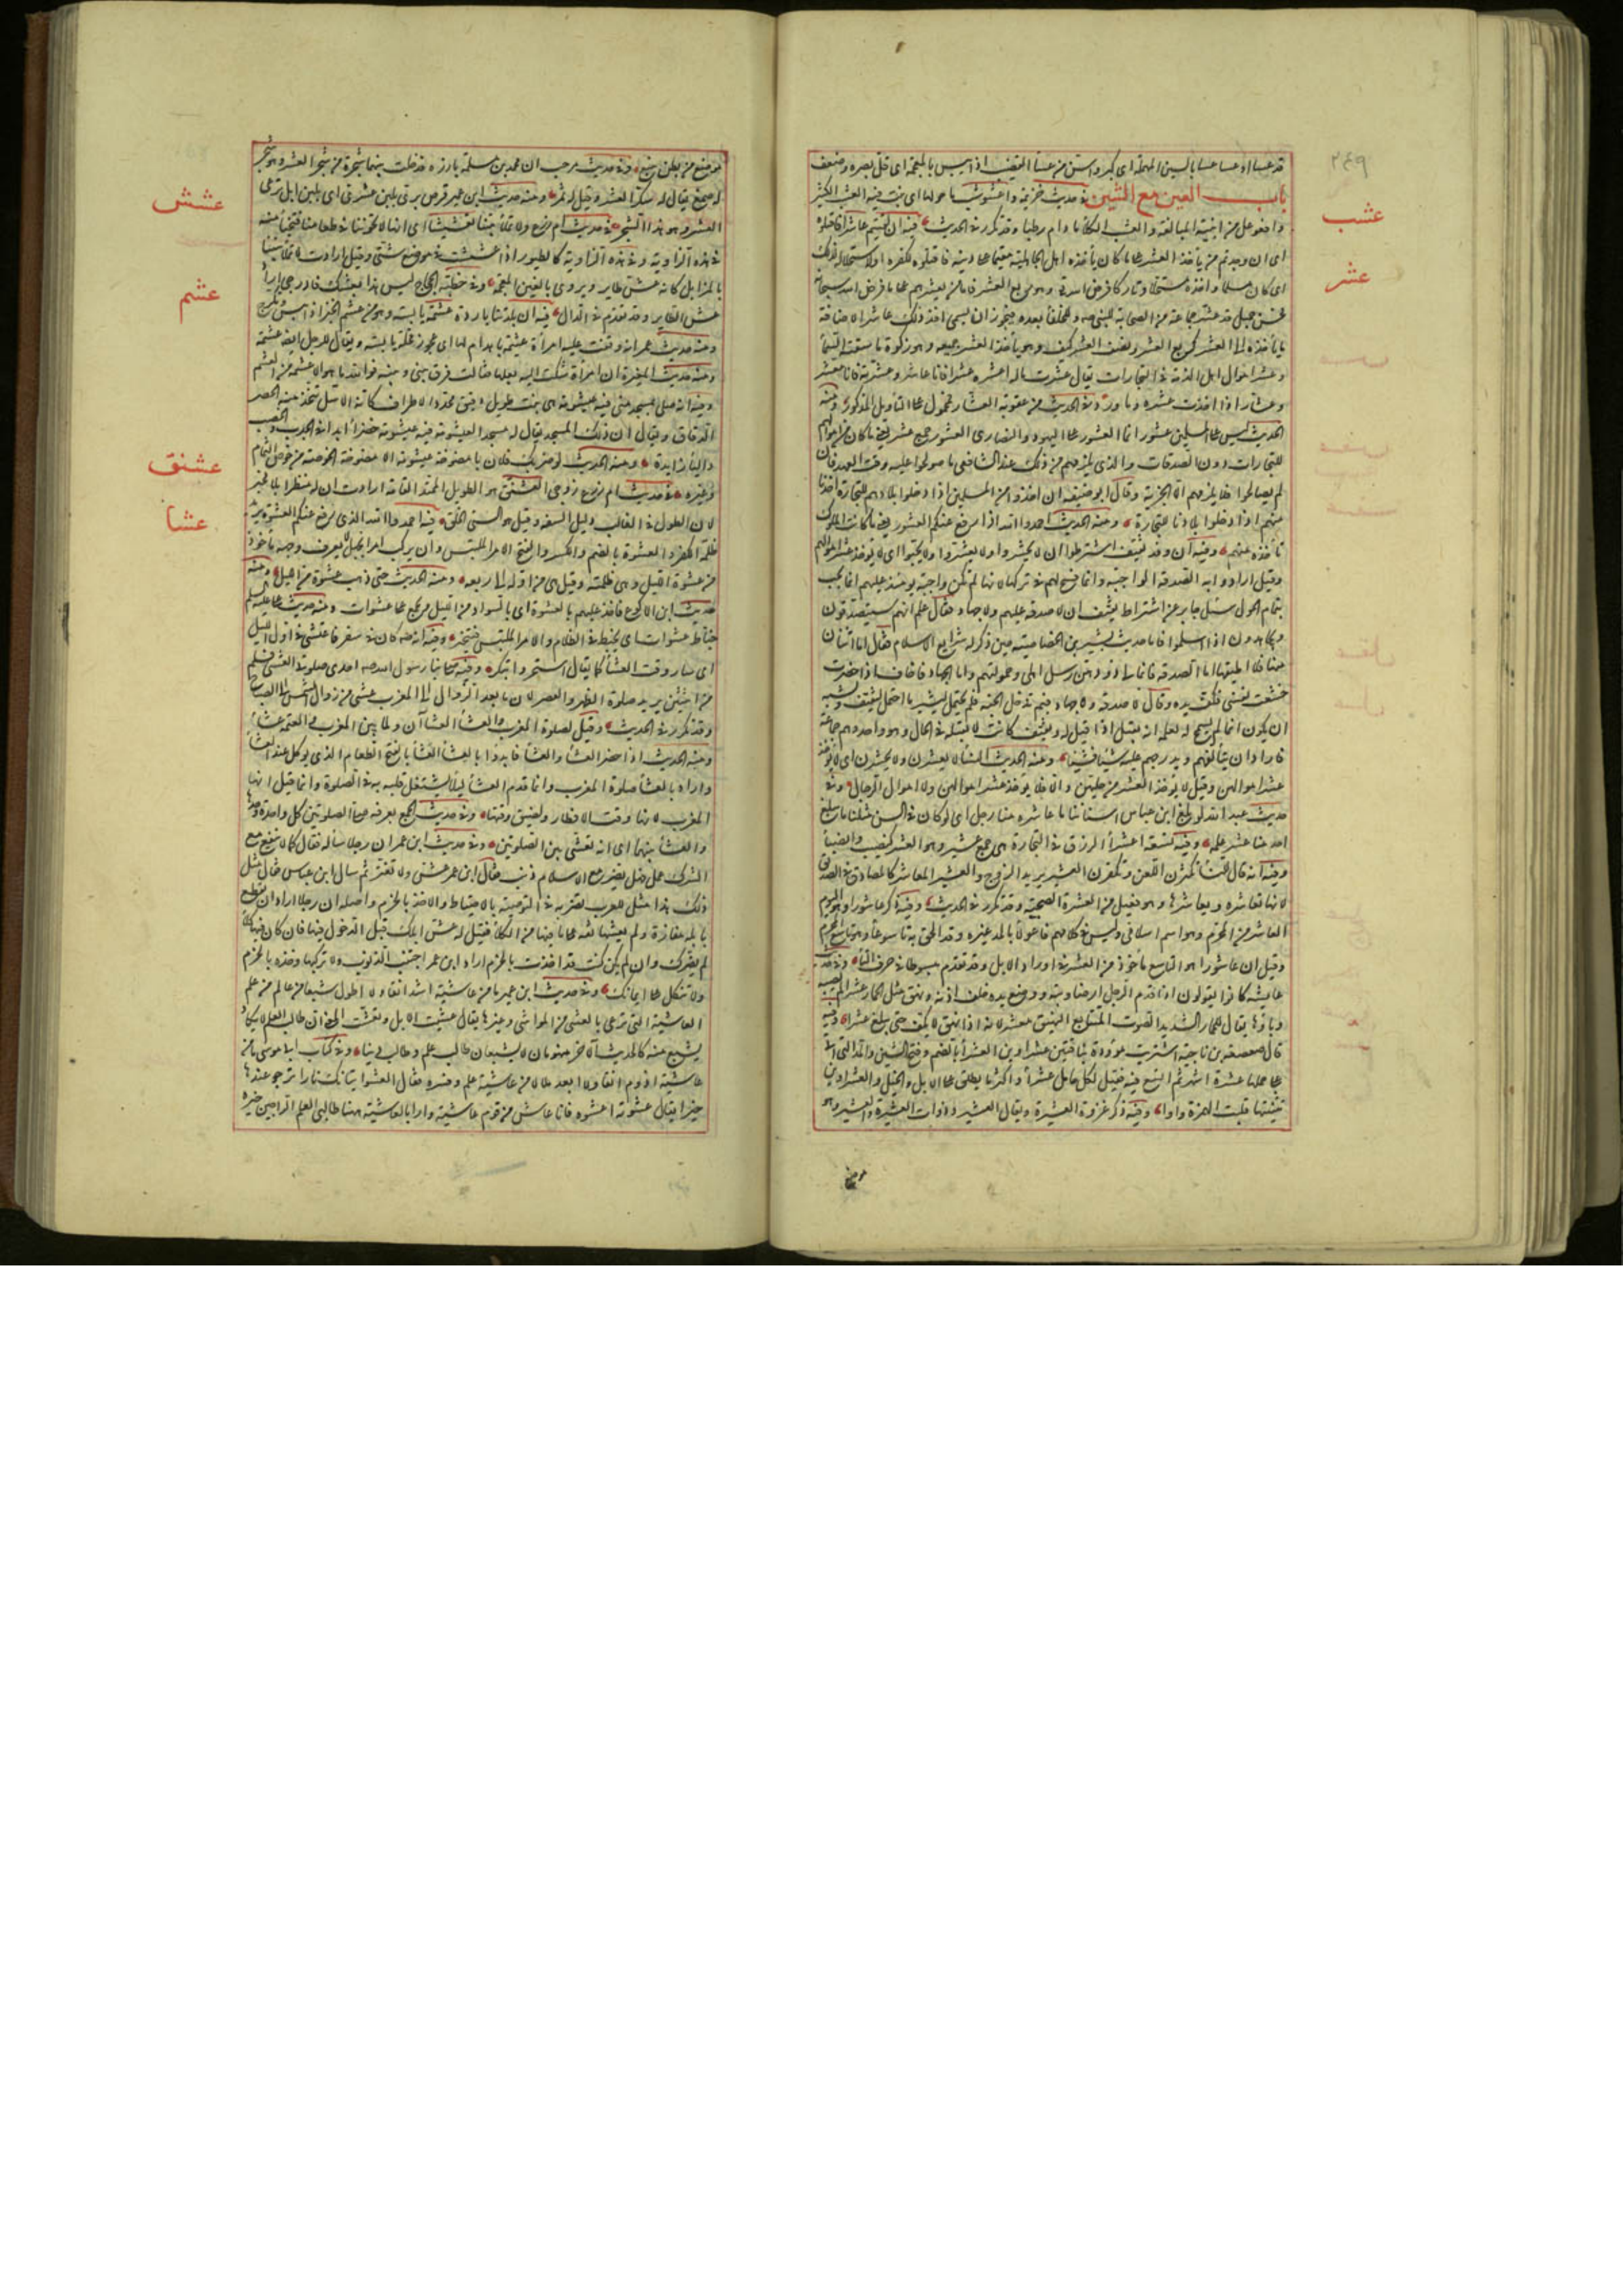 ٢٤٩
قد عسا او عسا عسا بالسين المهملة اى كبر واسن من عسا القضيب اذا يبس بالمعجمة اى قل بصره وضعف
باب العين مع الشين فى حديث خزيمة واعشوشب ما حولها اى نبت فيه العشب الكثير
عشب
وافعوعل من ابنية المبالغة والعشب الكلأ ما دام رطبا وقد تكرر فى الحديث فيه ان لقيتم عاشرا فاقتلوه
عشر
اى ان وجدتم من يأخذ العشر على ما كان يأخذه اهل الجاهلية مقيما على دينه فاقتلوه لكفره او لاستحلاله لذلك
ان كان مسلما واخذه مستحلا وتاركا فرض الله وهو ربع العشر فاما من يعشرهم على ما فرض الله سبحانه
فحسن جميل قد عشر جماعة من الصحابة للنبى صه وللخلفا بعده فيجوز ان يسمى آخذ ذلك عاشرا لاضافة
ما يأخذه الى العشر كربع العشر ونصف العشر كيف وهو يأخذ العشر جميعه وهو زكوة ما سقته السماء
وعشر اموال اهل الذمة فى التجارات يقال عشرت ماله اعشره عشرا فانا عاشر وعشرته فانا معشر
وعشار اذا اخذت عشره وما ورد فى الحديث من عقوبة العشار فمحمول على التأويل المذكور ومنه
الحديث ليس على المسلمين عشور انما العشور على اليهود والنصارى العشور جمع عشر يعنى ما كان من اموالهم
للتجارات دون الصدقات والذى يلزمهم من ذلك عند الشافعى ما صولحوا عليه وقت العهد فان
لم يصالحوا فلا يلزمهم الا الجزية وقال ابو حنيفة ان اخذوا من المسلمين اذا دخلوا بلادهم للتجارة اخذنا
منهم اذا دخلوا بلادنا للتجارة ومنه الحديث احمدوا الله اذا رفع عنكم العشور يعنى ما كانت الملوك
تأخذه منهم وفيه ان وفد ثقيف اشترطوا ان لا يحشروا ولا يعشروا ولا يجبوا اى لا يؤخذ عشر اموالهم
وقيل ارادوا به الصدقة الواجبة وانما فسح لهم فى تركها لانها لم تكن واجبة يومئذ عليهم انما تجب
بتمام الحول سئل جابر عن اشتراط ثقيف ان لا صدقة عليهم ولا جهاد فقال علم انهم سيتصدقون
ويجاهدون اذا اسلموا فاما حديث بشير بن الخصاصية حين ذكر له شرايع الاسلام فقال اما اثنان
منها فلا اطيقهما اما الصدقة فانما لى ذود هن رسل اهلى وحمولتهم واما الجهاد فاخاف اذا حضرت
خشعت نفسى فكف يده وقال لا صدقة ولا جهاد فبم تدخل الجنة فلم يحتمل لبشير ما احتمل لثقيف ويشبه
ان يكون انما لم يسمح له لعلمه انه يقبل اذا قيل له وثقيف كانت لا تقبله فى الحال وهو واحد وهم جماعة
فاراد ان يتألفهم ويدرجهم عليه شيئا فشيئا ومنه الحديث النسا لا يعشرن ولا يحشرن اى لا يؤخذ
عشر اموالهن وقيل لا يؤخذ العشر من حليهن والا فلا يؤخذ عشر اموالهن ولا اموال الرجال وفى
حديث عبد الله لو بلغ ابن عباس اسناننا ما عاشره منا رجل اى لو كان فى السن مثلنا ما بلغ
احد منا عشر علمه وفيه تسعة اعشراء الرزق فى التجارة هى جمع عشير وهو العشر كنصيب وانصباء
وفيه انه قال للنساء تكثرن اللعن وتكفرن العشير يريد الزوج والعشير المعاشر كالمصادق فى الصديق
لانها تعاشره ويعاشرها وهو فعيل من العشرة الصحبة وقد تكرر فى الحديث وفيه ذكر عاشورا وهو اليوم
العاشر من المحرم وهو اسم اسلامى وليس فى كلامهم فاعولاء بالمد غيره وقد الحق به تاسوعاء وهو تاسع المحرم
وقيل ان عاشورا هو التاسع مأخوذ من العشر فى اوراد الابل وقد تقدم مبسوطا فى حرف التاء وفى حديث
عايشة كانوا يقولون اذا قدم الرجل ارضا وبئة ووضع يده خلف اذنه ونهق مثل الحمار عشرا لم يصبه
وباؤها يقال للحمار الشديد الصوت المتتابع النهيق معشر لانه اذا نهق لا يكف حتى يبلغ عشرا وفيه
قال صعصعة بن ناجية اشتريت موؤدة بناقتين عشراوين العشراء بالضم وفتح الشين والمد التى اتى
على حملها عشرة اشهر ثم اتسع فيه فقيل لكل حامل عشراء واكثر ما يطلق على الابل والخيل والعشراوين
تثنيتها قلبت الهمزة واوا وفيه ذكر غزوة العشيرة ويقال العشير وذات العشيرة والعشير وهو
موضع
موضع من بطن ينبع وفى حديث مرحب ان محمد بن مسلمة بارزه فدخلت بينهما شجرة من شجر العشر وهو شجر
له صمغ يقال له سكر العشر وقيل له ثمر ومنه حديث ابن عمير قرص برى بلبن عشرى اى بلبن ابل ترعى
عشش
العشر وهو هذا الشجر فى حديث ام زرع ولا تملأ بيتنا تعشيشا اى انها لا تخوننا فى طعامنا فتخبأ منه
فى هذه الزاوية وفى هذه الزاوية كالطيور اذا عششت فى مواضع شتى وقيل ارادت لا تملأ بيتنا
بالمزابل كانه عش طاير ويروى بالغين المعجمة وفى خطبة الحجاج ليس هذا بعشك فادرجى اراد
عشم
عش الطاير وقد تقدم فى الدال فيه ان بلدتنا باردة عشمة يابسة وهو من عشم الخبز اذا يبس وتكرج
ومنه حديث عمر انه وقفت عليه امرأة عشمة باهدام لها اى عجوز قحلة يابسة ويقال للرجل ايضا عشمة
ومنه حديث المغيرة ان امرأة شكت اليه بعلها فقالت فرق بينى وبينه فوالله ما هو الا عشمة من العشم
وفيه انه صلى بمسجد منى فيه عيشومة هى نبت طويل دقيق محدد الاطراف كأنه الاسل تتخذ منه الحصر
الدقاق ويقال ان ذلك المسجد يقال له مسجد العيشومة فيه عيشومة خضراء ابدا فى الجدب والخصب
والياء زايدة ومنه الحديث لو ضربك فلان بامصوخة عيشومة الامصوخة الخوصة من خوص الثمام
عشنق
وغيره فى حديث ام زرع زوجى العشنق هو الطويل الممتد القامة ارادت ان له منظرا بلا مخبر
عشا
لان الطول فى الغالب دليل السفه وقيل هو السئ الخلق فيه احمدوا الله الذى رفع عنكم العشوة يريد
ظلمة الكفر والعشوة بالضم والكسر والفتح الامر الملتبس وان يركب امرا بجهل لا يعرف وجهه مأخوذ
من عشوة الليل وهى ظلمته وقيل هى من اوله الى ربعه ومنه الحديث حتى ذهب عشوة من الليل ومنه
حديث ابن الاكوع فاخذ عليهم بالعشوة اى بالسواد من الليل ويجمع على عشوات ومنه حديث على عليه السلم
خباط عشوات اى يخبط فى الظلام والامر الملتبس فيتحير وفيه انه صه كان فى سفر فاعتشى فى اول الليل
اى سار وقت العشاء كما يقال استحر وابتكر وفيه صلى بنا رسول الله صه احدى صلوتى العشى فسلم
من اثنتين يريد صلوة الظهر والعصر لان ما بعد الزوال الى المغرب عشى من زوال الشمس الى الصباح
وقد تكرر فى الحديث وقيل لصلوة المغرب والعشاء العشاآن ولما بين المغرب والعتمة عشاء
ومنه الحديث اذا حضر العشاء والعشاء فابدؤا بالعشاء العشاء بالفتح الطعام الذى يؤكل عند العشاء
واراد بالعشاء صلوة المغرب وانما قدم العشاء ليلا يشتغل قلبه به فى الصلوة وانما قيل انها
المغرب لانها وقت الافطار ولضيق وقتها وفى حديث الجمع بعرفة صلى الصلوتين كل واحدة وحدها
والعشاء بينهما اى انه تعشى بين الصلوتين وفى حديث ابن عمر ان رجلا سأله فقال كما لا ينفع مع
الشرك عمل هل يضر مع الاسلام ذنب فقال ابن عمر عش ولا تغتر ثم سال ابن عباس فقال مثل
ذلك هذا مثل للعرب تضربه فى التوصية بالاحتياط والاخذ بالحزم واصله ان رجلا اراد ان يقطع
بابله مفازة ولم يعشها ثقة على ما فيها من الكلأ فقيل له عش ابلك قبل الدخول فيها فان كان فيها كلأ
لم يضرك وان لم يكن كنت قد اخذت بالحزم اراد ابن عمر اجتنب الذنوب ولا تركبها وخذ بالحزم
ولا تتكل على ايمانك وفى حديث ابن عمير ما من عاشية اشد انقا ولا اطول شبعا من عالم من علم
العاشية التى ترعى بالعشى من المواشى وغيرها يقال عشيت الابل وتعشت المعنى ان طالب العلم لا يكاد
يشبع منه كالحديث الآخر منهومان لا يشبعان طالب علم وطالب دنيا وفى كتاب ابى موسى ما من
عاشية ادوم انقا ولا ابعد ملالا من عاشية علم وفسره فقال العشو اتيانك نارا ترجو عندها
خيرا يقال عشوته اعشوه فانا عاش من قوم عاشية واراد بالعاشية ههنا طالبى العلم الراجين خيره